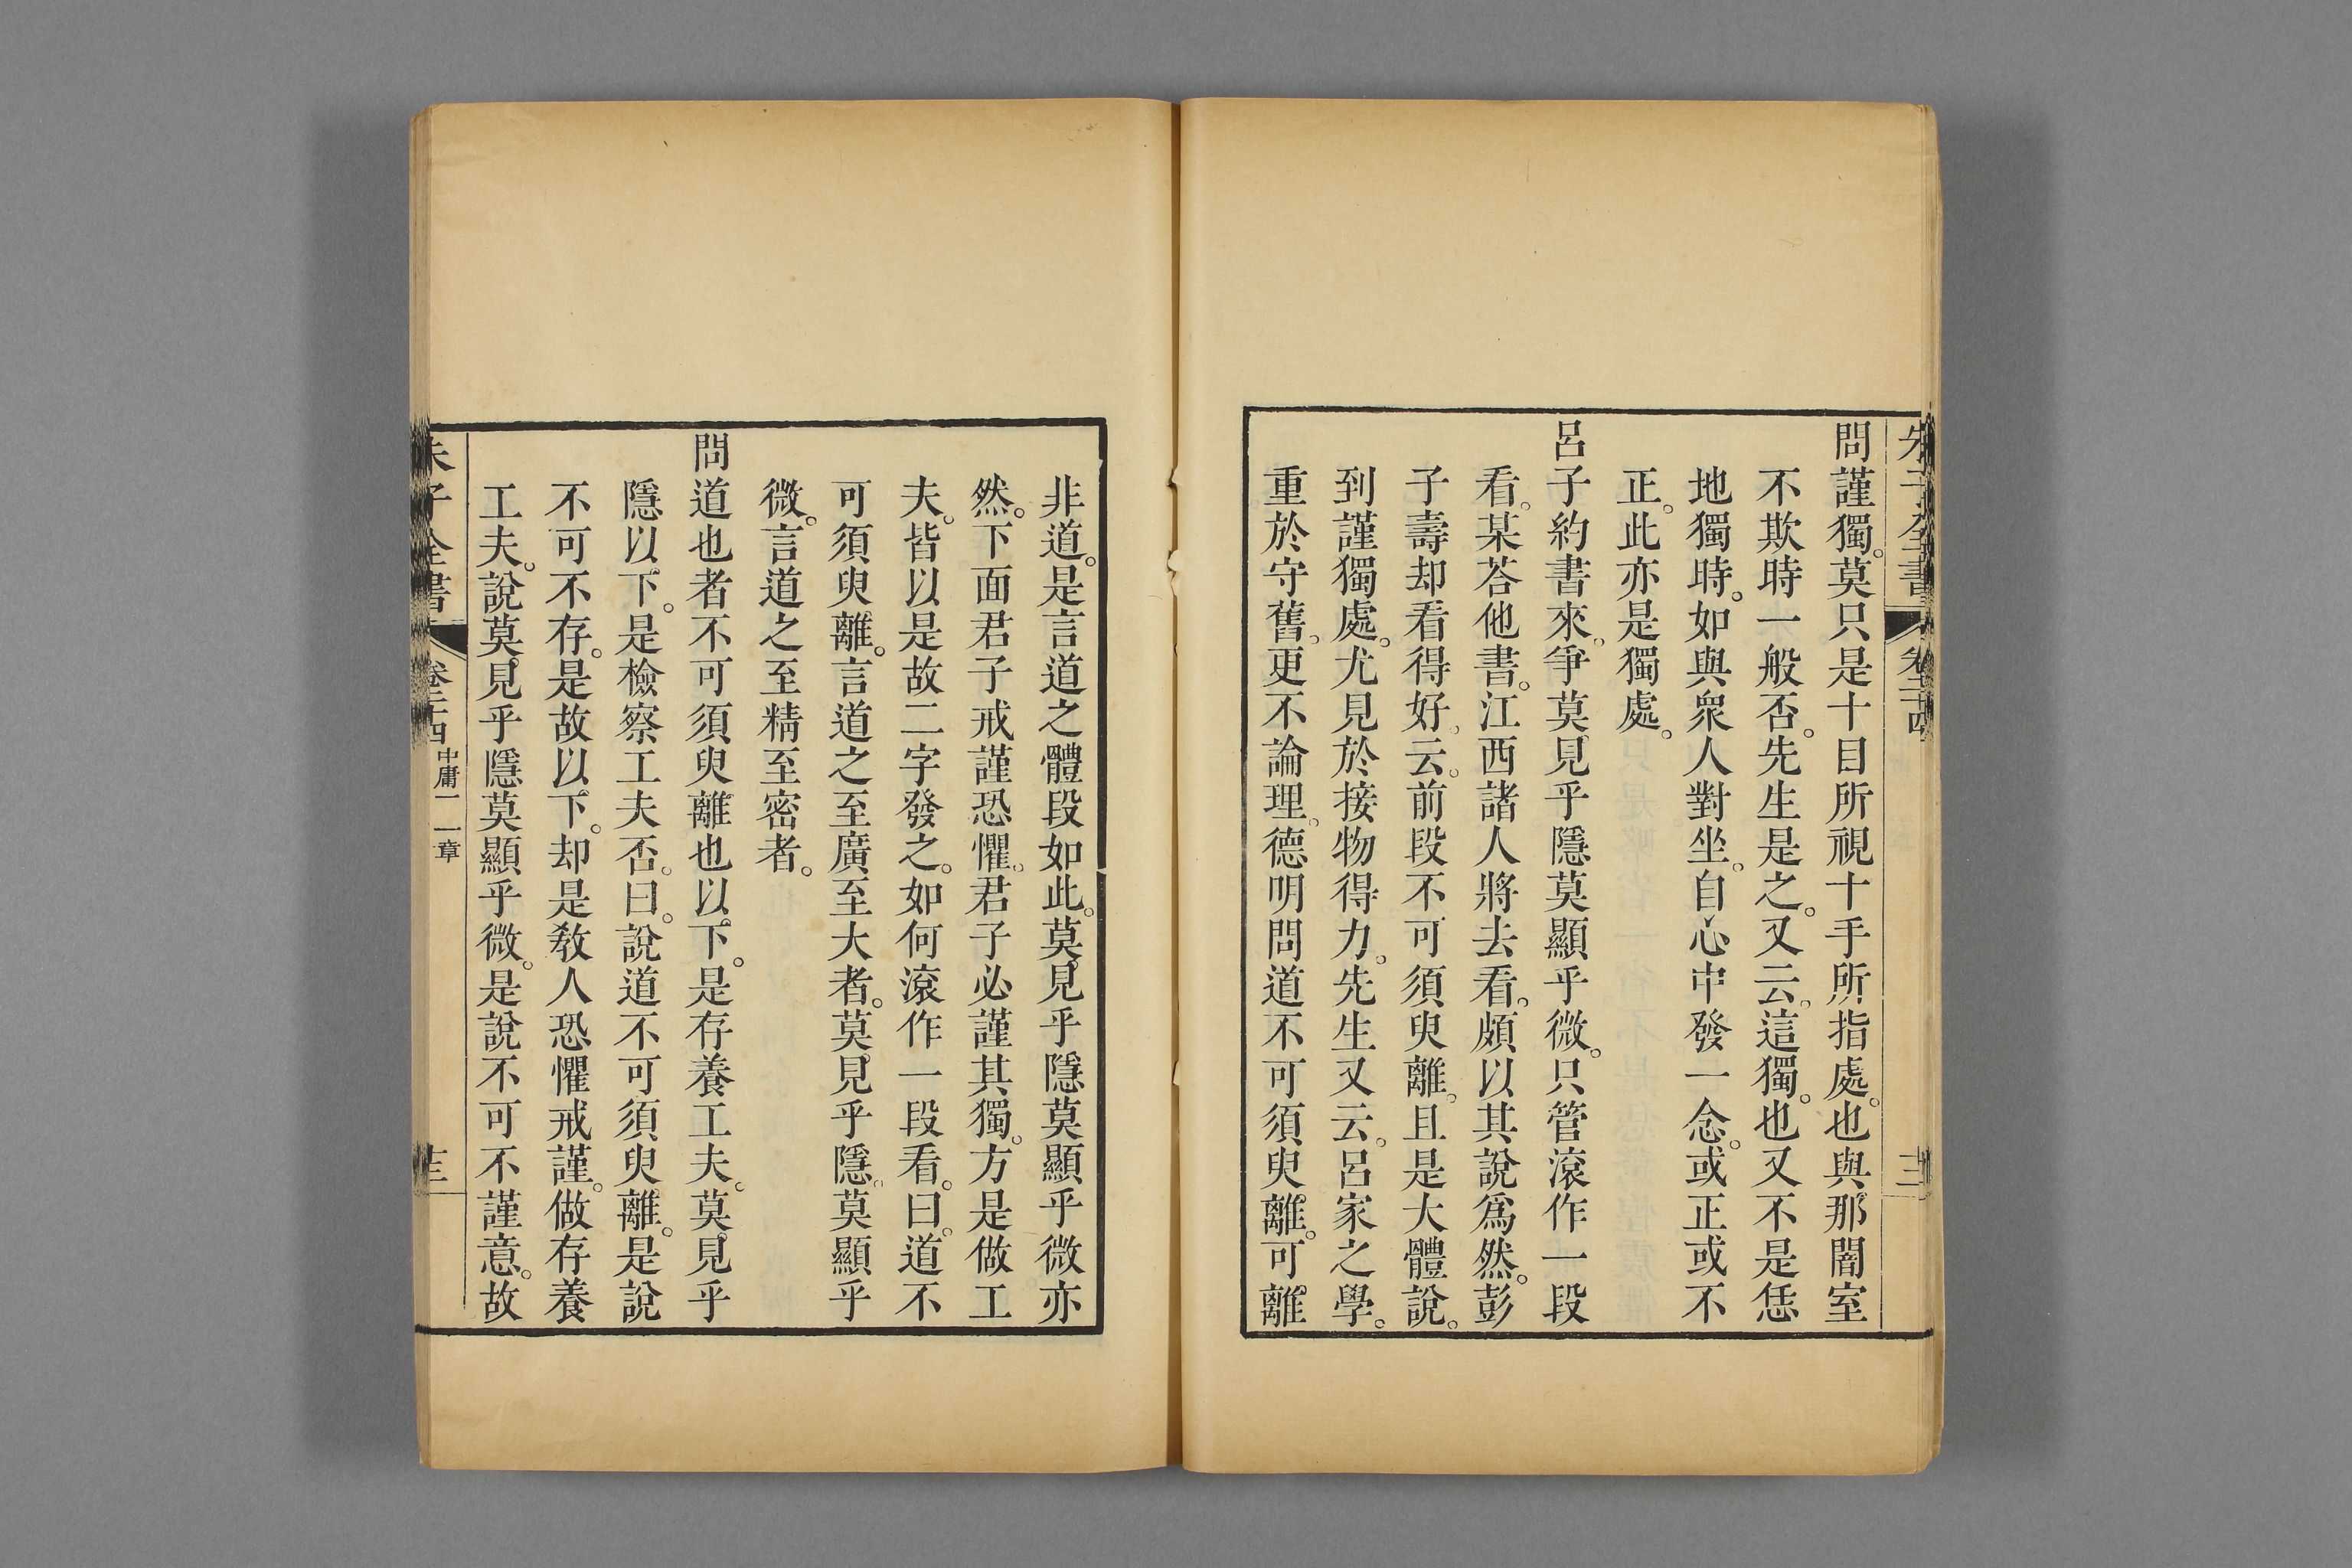 朱子全書 卷二十四
問謹獨。莫只是十目所視十手所指處。也與那闇室
不欺時一般否。先生是之。又云。這獨。也又不是恁
地獨時。如與衆人對坐。自心中發一念。或正或不
正。此亦是獨處。
呂子約書來。爭莫見乎隱莫顯乎微。只管滾作一段
看。某荅他書。江西諸人將去看。頗以其說爲然。彭
子壽却看得好。云。前段不可須臾離。且是大體說。
到謹獨處。尤見於接物得力。先生又云。呂家之學。
重於守舊。更不論理。德明問道不可須臾離。可離
非道。是言道之體段如此。莫見乎隱莫顯乎微亦
然。下面君子戒謹恐懼。君子必謹其獨。方是做工
夫。皆以是故二字發之。如何滾作一段看。曰。道不
可須臾離。言道之至廣至大者。莫見乎隱。莫顯乎
微。言道之至精至密者。
問道也者不可須臾離也以下。是存養工夫。莫見乎
隱以下。是檢察工夫否。曰。說道不可須臾離。是說
不可不存。是故以下。却是敎人恐懼戒謹。做存養
工夫。說莫見乎隱莫顯乎微。是說不可不謹意。故
朱子全書 卷二十四 中庸一 一章 十三